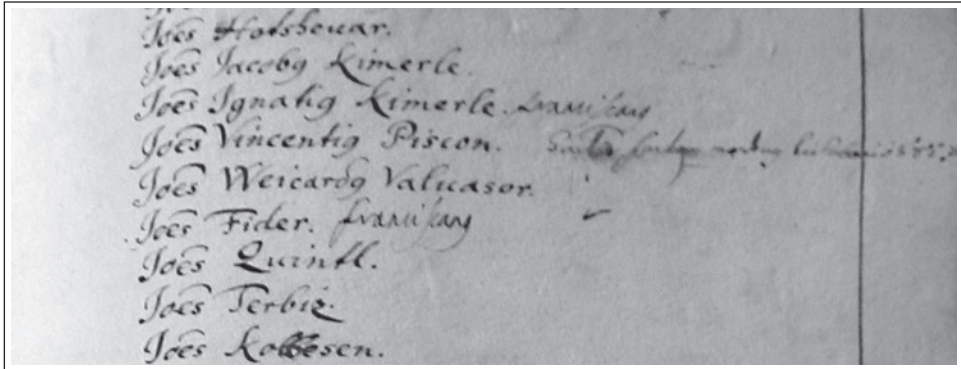 Joes Hotshevar.
Joes Jacobꝯ Kimerle.
Joes Ignatiꝯ Kimerle. Franciscanꝯ
Joes Vincentiꝯ Piscon.
Joes Weicardꝯ Valvasor.
Joes Fider. Franciscanꝯ
Joes Quintl.
Joes Terbiz.
Joes